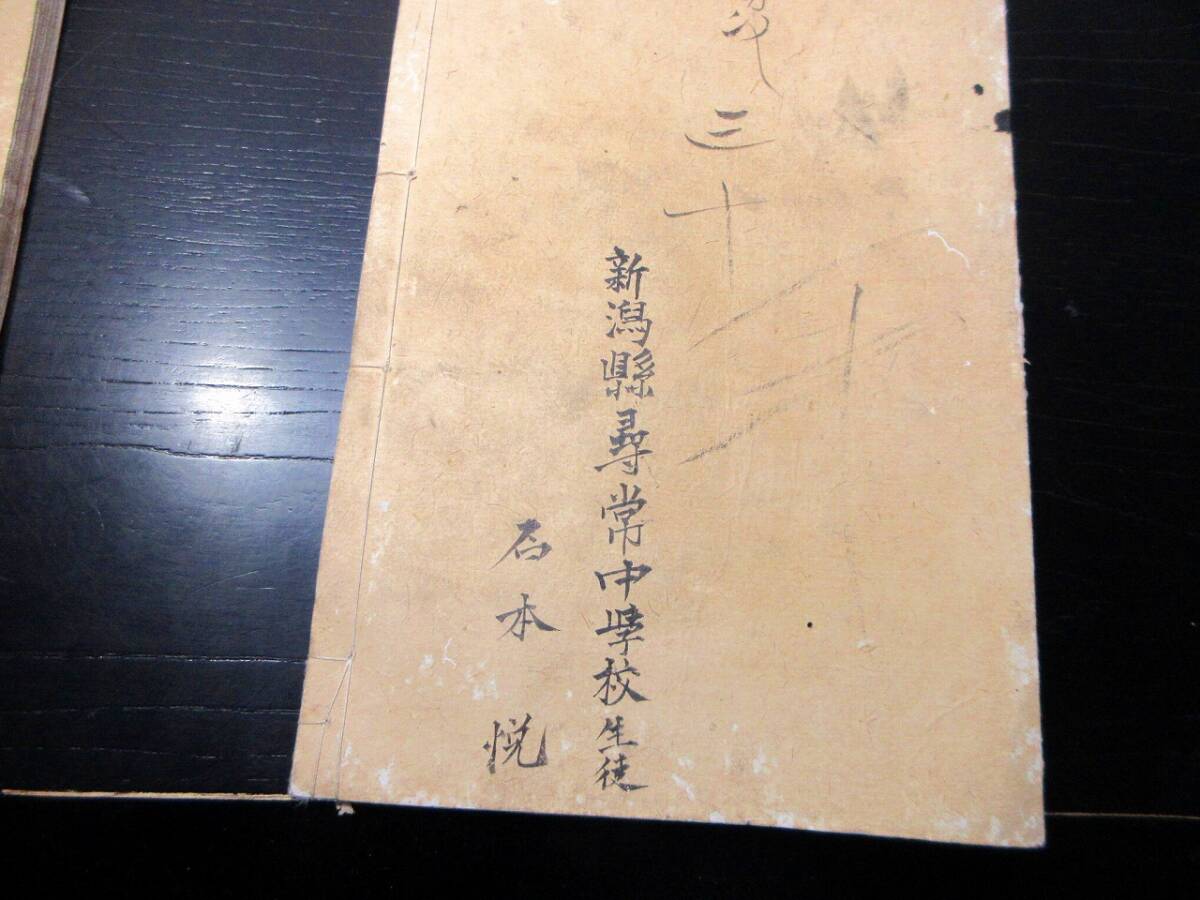 三十
新潟縣尋常中學校生徒
石本悦